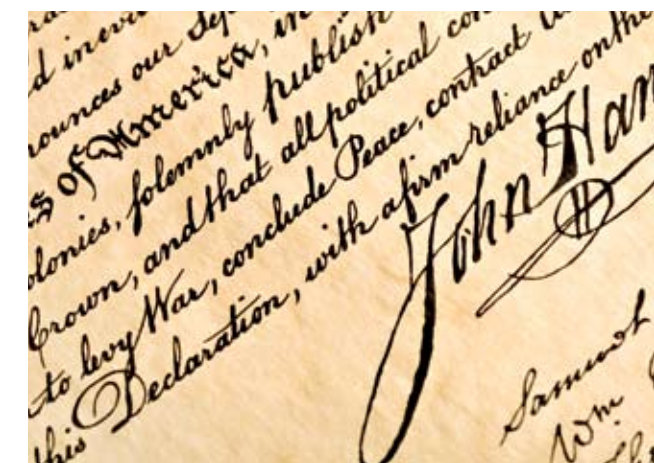 d inevi
nounces our Sep
s of America, in
olonies, solemnly publish
Crown, and that all political con
to levy War, conclude Peace, contract
this Declaration, with a firm reliance on the
John Han
Samuel
Wm